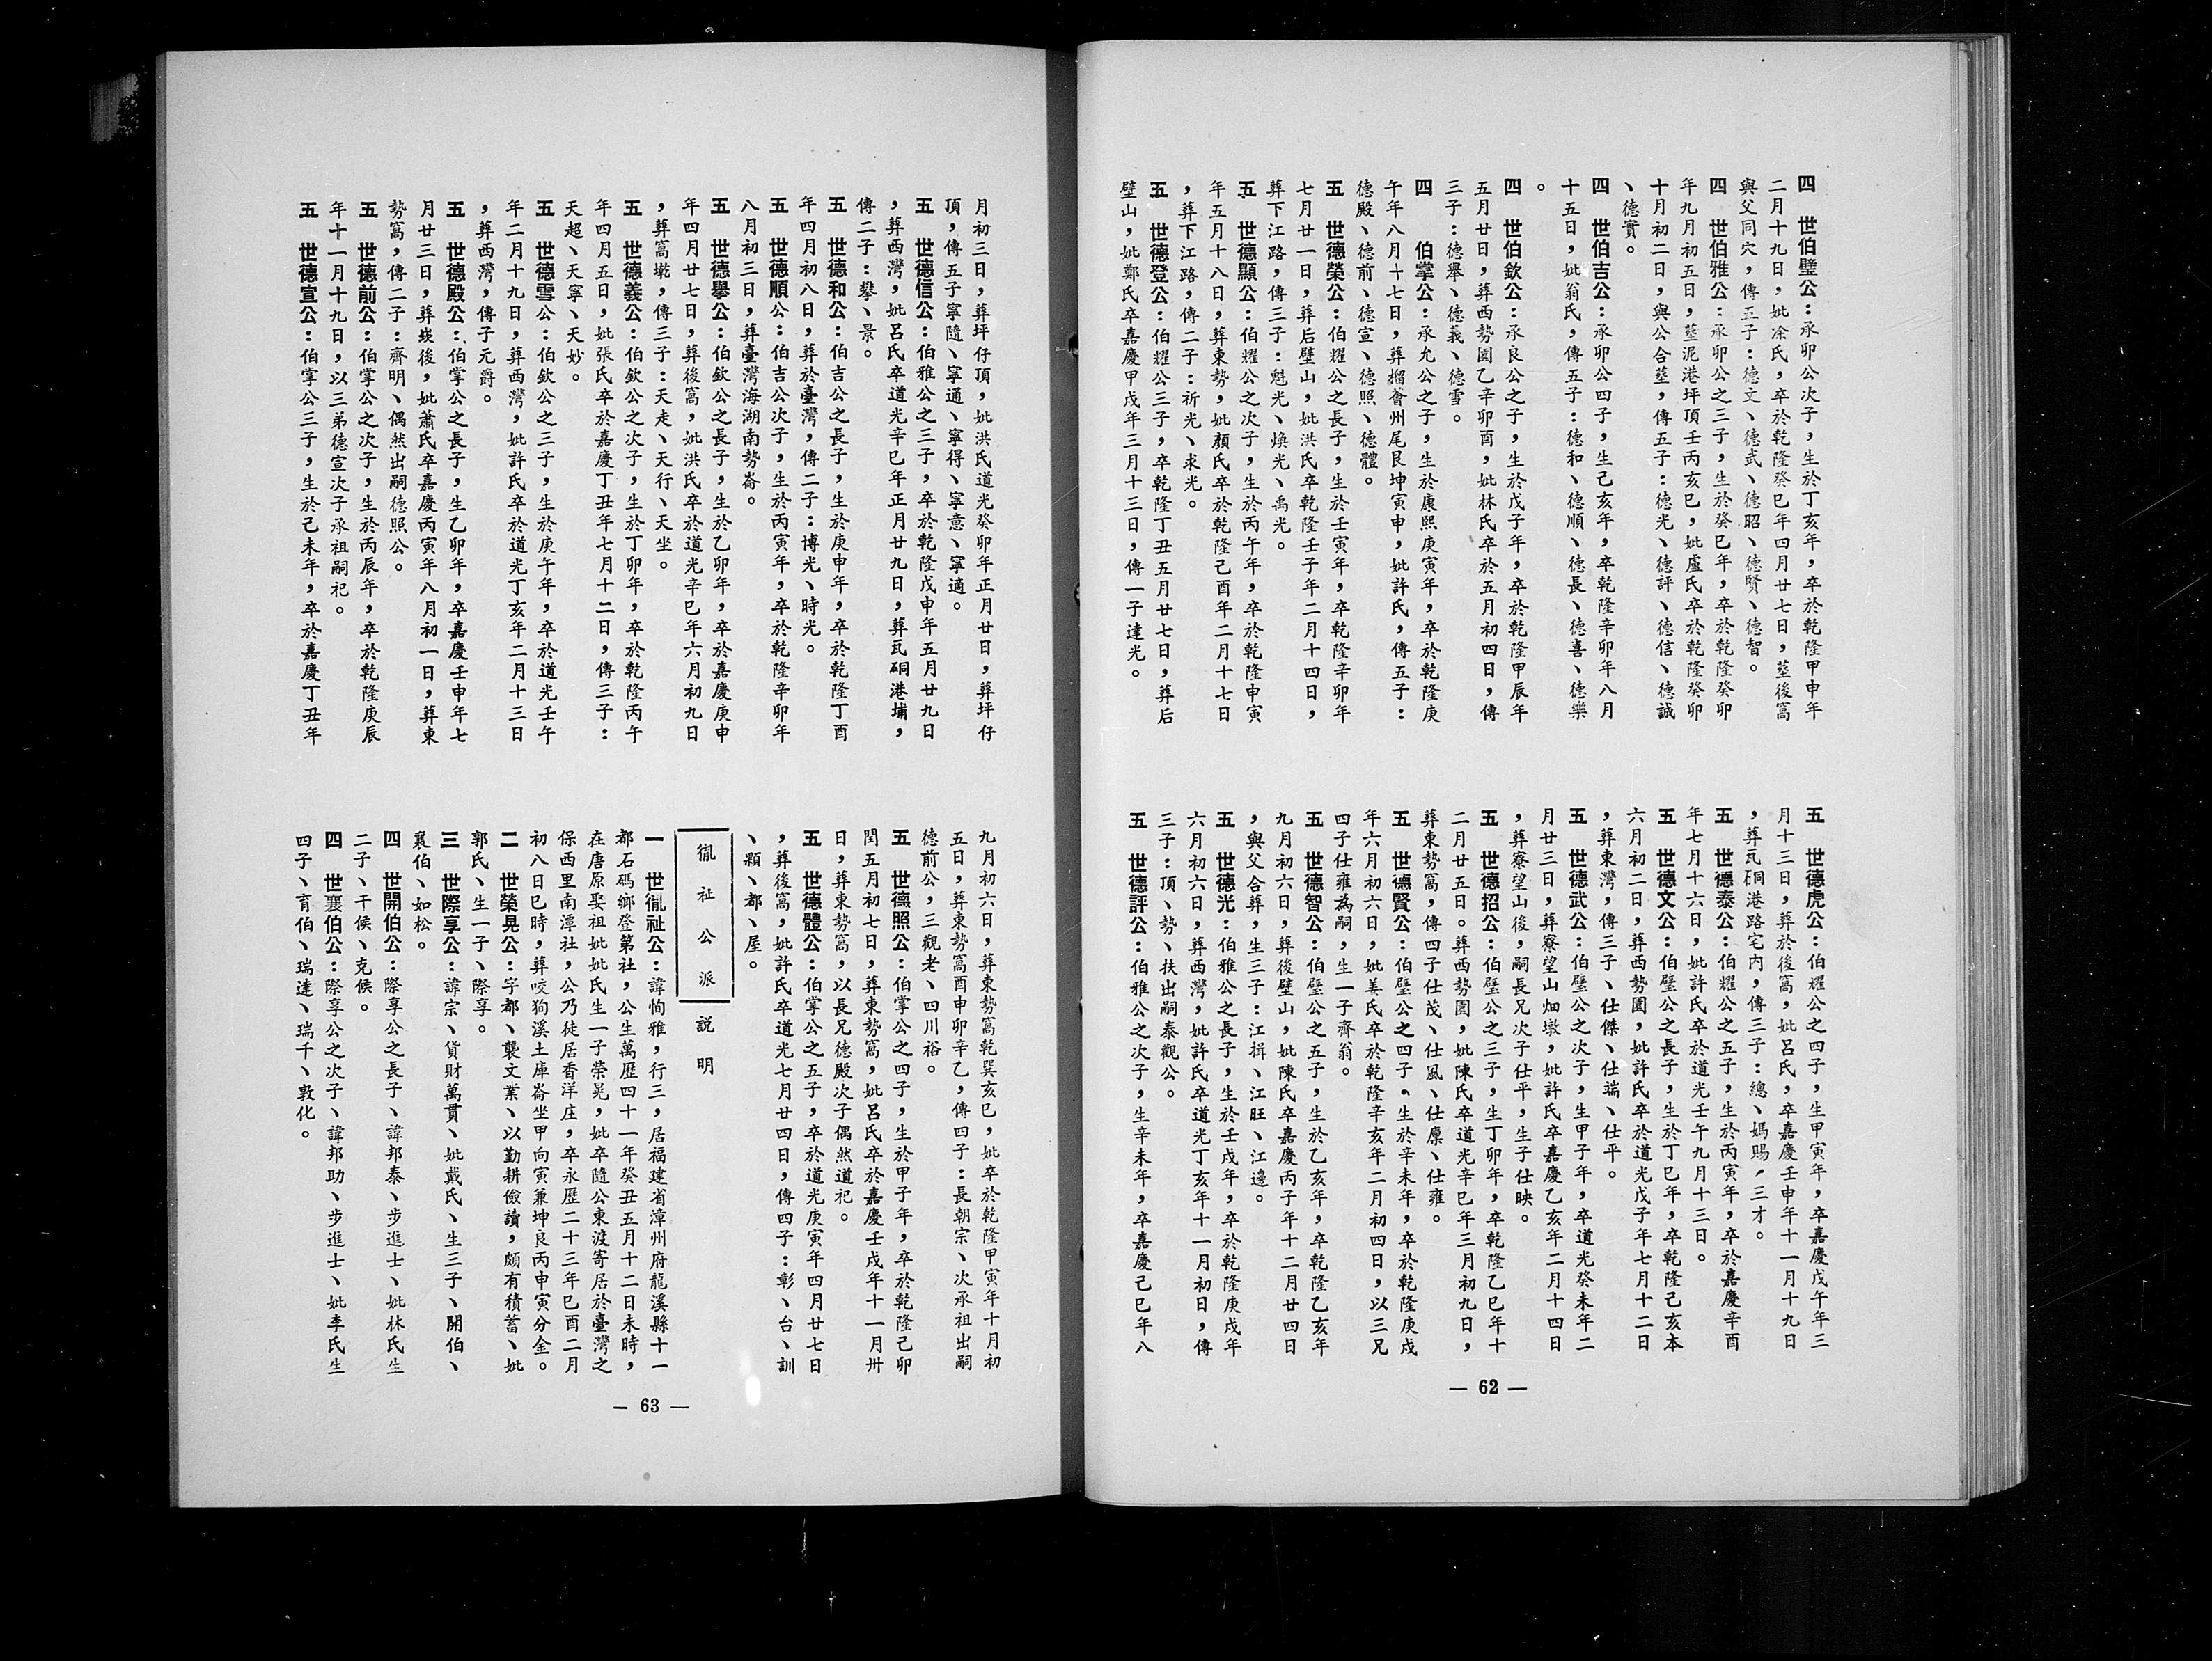 四　世伯璧公：承卯公次子，生於丁亥年，卒於乾隆甲申年
二月十九日，妣凃氏，卒於乾隆癸巳年四月廿七日，塟後窩
與父同穴，傳五子：德文、德武、德昭、德賢、德智。
四　世伯雅公：承卯公之三子，生於癸巳年，卒於乾隆癸卯
年九月初五日，塟泥港坪頂壬丙亥巳，妣盧氏卒於乾隆癸卯
十月初二日，與公合塟，傳五子：德光、德評、德信、德誠
、德實。
四　世伯吉公：承卯公四子，生己亥年，卒乾隆辛卯年八月
十五日，妣翁氏，傳五子：德和、德順、德長、德喜、德樂
。
四　世伯欽公：承良公之子，生於戊子年，卒於乾隆甲辰年
五月廿日，葬西勢園乙辛卯酉，妣林氏卒於五月初四日，傳
三子：德舉、德義、德雪。
四　伯掌公：承允公之子，生於康熙庚寅年，卒於乾隆庚
午年八月十七日，葬檔會州尾艮坤寅申，妣許氏，傳五子：
德殿、德前、德宣、德照、德體。
五　世德榮公：伯耀公之長子，生於壬寅年，卒乾隆辛卯年
七月廿一日，葬后壁山，妣洪氏卒乾隆壬子年二月十四日，
葬下江路，傳三子：魁光、煥光、禹光。
五　世德顯公：伯耀公之次子，生於丙午年，卒於乾隆申寅
年五月十八日，葬東勢，妣顏氏卒於乾隆己酉年二月十七日
，葬下江路，傳二子：祈光、求光。
五　世德登公：伯耀公三子，卒乾隆丁丑五月廿七日，葬后
壁山，妣鄭氏卒嘉慶甲戌年三月十三日，傳一子達光。
五　世德虎公：伯耀公之四子，生甲寅年，卒嘉慶戊午年三
月十三日，葬於後窩，妣呂氏，卒嘉慶壬申年十一月十九日
，葬瓦硐港路宅內，傳三子：總、媽賜、三才。
五　世德泰公：伯耀公之五子，生於丙寅年，卒於嘉慶辛酉
年七月十六日，妣許氏卒於道光壬午九月十三日。
五　世德文公：伯璧公之長子，生於丁巳年，卒乾隆己亥本
六月初二日，葬西勢園，妣許氏卒於道光戊子年七月十二日
，葬東灣，傳三子、仕傑、仕端、仕平。
五　世德武公：伯璧公之次子，生甲子年，卒道光癸未年二
月廿三日，葬寮望山畑墩，妣許氏卒嘉慶乙亥年二月十四日
，葬寮望山後，嗣長兄次子仕平，生子仕映。
五　世德招公：伯璧公之三子，生丁卯年，卒乾隆乙巳年十
二月廿五日。葬西勢園，妣陳氏卒道光辛巳年三月初九日，
葬東勢窩，傳四子仕茂、仕風、仕廩、仕雍。
五　世德賢公：伯璧公之四子，生於辛未年，卒於乾隆庚戌
年六月初六日，妣姜氏卒於乾隆辛亥年二月初四日，以三兄
四子仕雍為嗣，生一子齊翁。
五　世德智公：伯璧公之五子，生於乙亥年，卒乾隆乙亥年
九月初六日，葬後壁山，妣陳氏卒嘉慶丙子年十二月廿四日
，與父合葬，生三子：江揖、江旺、江邊。
五　世德光：伯雅公之長子，生於壬戌年，卒於乾隆庚戌年
六月初六日，葬西灣，妣許氏卒道光丁亥年十一月初日，傳
三子：頂、勢、扶出嗣泰觀公。
五　世德評公：伯雅公之次子，生辛未年，卒嘉慶己巳年八
— 62 —
月初三日，葬坪仔頂，妣洪氏道光癸卯年正月廿日，葬坪仔
頂，傳五子寧隨、寧通、寧得、寧意、寧適。
五　世德信公：伯雅公之三子，卒於乾隆戊申年五月廿九日
，葬西灣，妣呂氏卒道光辛巳年正月廿九日，葬瓦硐港埔，
傳二子：攀、景。
五　世德和公：伯吉公之長子，生於庚申年，卒於乾隆丁酉
年四月初八日，葬於臺灣，傳二子：博光、時光。
五　世德順公：伯吉公次子，生於丙寅年，卒於乾隆辛卯年
八月初三日，葬臺灣海湖南勢崙。
五　世德舉公：伯欽公之長子，生於乙卯年，卒於嘉慶庚申
年四月廿七日，葬後窩，妣洪氏卒於道光辛巳年六月初九日
，葬窩墘，傳三子：天走、天行、天坐。
五　世德義公：伯欽公之次子，生於丁卯年，卒於乾隆丙午
年四月五日，妣張氏卒於嘉慶丁丑年七月十二日，傳三子：
天超、天寧、天妙。
五　世德雪公：伯欽公之三子，生於庚午年，卒於道光壬午
年二月十九日，葬西灣，妣許氏卒於道光丁亥年二月十三日
，葬西灣，傳子元爵。
五　世德殿公：伯掌公之長子，生乙卯年，卒嘉慶壬申年七
月廿三日，葬崁後，妣蕭氏卒嘉慶丙寅年八月初一日，葬東
勢窩，傳二子：齊明、偶然出嗣德照公。
五　世德前公：伯掌公之次子，生於丙辰年，卒於乾隆庚辰
年十一月十九日，以三弟德宣次子承祖嗣祀。
五　世德宣公：伯掌公三子，生於己未年，卒於嘉慶丁丑年
九月初六日，葬東勢窩乾巽亥巳，妣卒於乾隆甲寅年十月初
五日，葬東勢窩酉申卯辛乙，傳四子：長朝宗、次承祖出嗣
德前公，三觀老、四川裕。
五　世德照公：伯掌公之四子，生於甲子年，卒於乾隆己卯
閏五月初七日，葬東勢窩，妣呂氏卒於嘉慶壬戌年十一月卅
日，葬東勢窩，以長兄德殿次子偶然道祀。
五　世德體公：伯掌公之五子，卒於道光庚寅年四月廿七日
，葬後窩，妣許氏卒道光七月廿四日，傳四子：彰、台、訓
、顯、都、屋。
胤祉公派說明
一　世胤祉公：諱恂雅，行三，居福建省漳州府龍溪縣十一
都石碼鄉登第社，公生萬歷四十一年癸丑五月十二日未時，
在唐原娶祖妣妣氏生一子榮晃，妣卒隨公東渡寄居於臺灣之
保西里南潭社，公乃徒居香洋庄，卒永歷二十三年巳酉二月
初八日巳時，葬咬狗溪土庫崙坐甲向寅兼坤艮丙申寅分金。
二　世榮晃公：字都、襲文業、以勤耕儉讀，頗有積蓄、妣
郭氏、生一子、際享。
三　世際享公：諱宗、貨財萬貫、妣戴氏、生三子、開伯、
襄伯、如松。
四　世開伯公：際享公之長子、諱邦泰、步進士、妣林氏生
二子、干候、克候。
四　世襄伯公：際享公之次子、諱邦助、步進士、妣李氏生
四子、育伯、瑞達、瑞千、敦化。
— 63 —